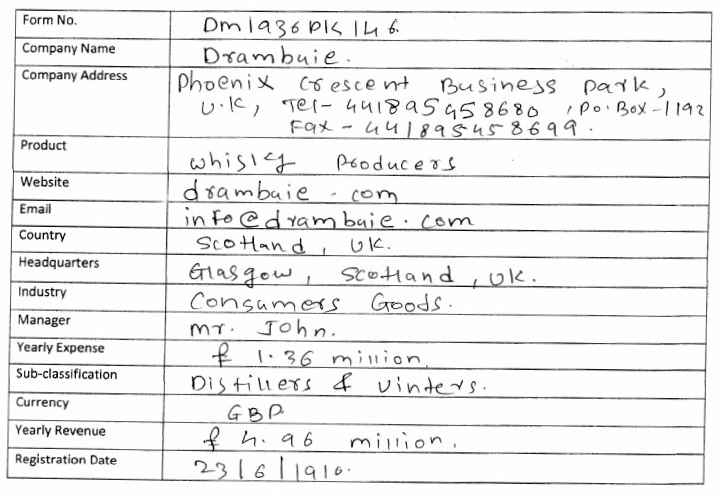 Form No. Dm1936DK146.
Company Name Drambuie.
Company Address Phoenix Crescent Business Park,
U.K, Tel- 441895458680, Po. Box-1192
Fax - 441895458699.
Product whisky Producers
Website drambuie.com
Email info@drambuie.com
Country Scotland, UK.
Headquarters Glasgow, Scotland, UK.
Industry Consumers Goods.
Manager mr. John.
Yearly Expense £ 1.36 million.
Sub-classification Distillers & vinters.
Currency GBP
Yearly Revenue £ 4.96 million.
Registration Date 23/6/1910.